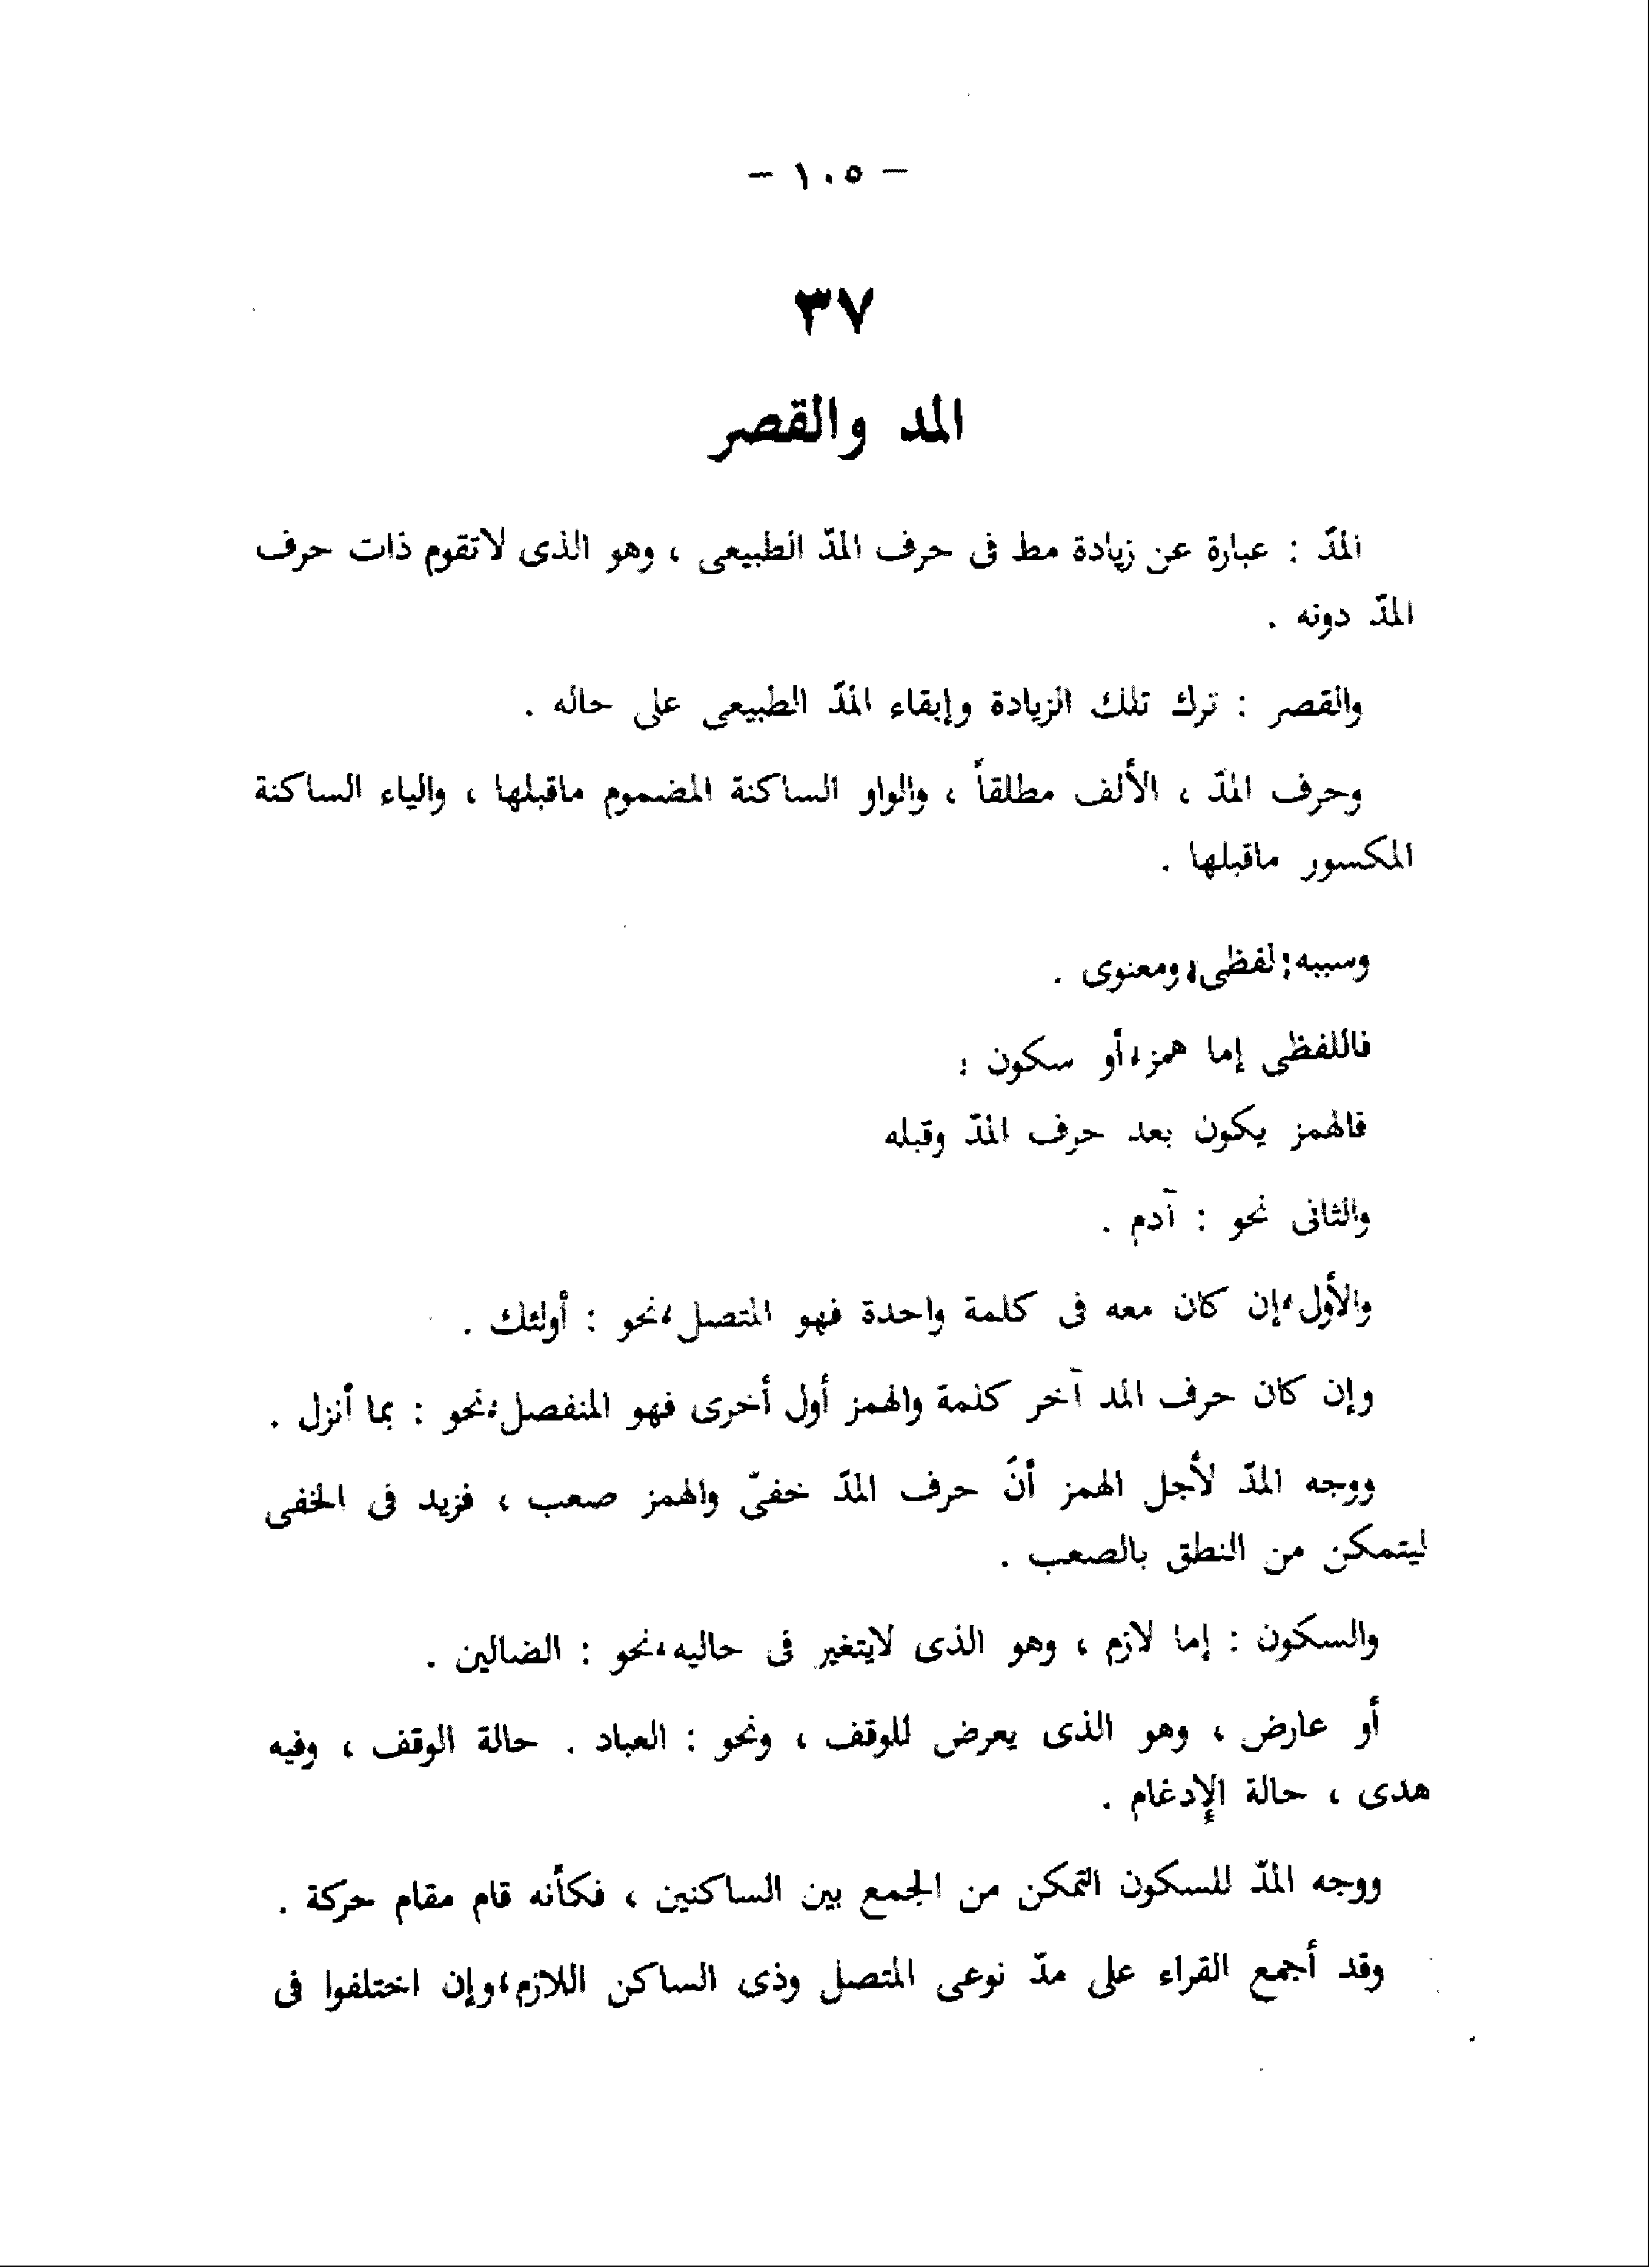 - ١٠٥ -
٣٧
المد والقصر
المدّ : عبارة عن زيادة مط فى حرف المدّ الطبيعى ، وهو الذى لاتقوم ذات حرف
المدّ دونه .
والقصر : ترك تلك الزيادة وإبقاء المدّ الطبيعى على حاله .
وحرف المدّ ، الألف مطلقاً ، والواو الساكنة المضموم ماقبلها ، والياء الساكنة
المكسور ماقبلها .
وسببه: لفظى، ومعنوى .
فاللفظى إما همز، أو سكون :
فالهمز يكون بعد حرف المدّ وقبله
والثانى نحو : آدم .
والأول، إن كان معه فى كلمة واحدة فهو المتصل، نحو : أولئك .
وإن كان حرف المد آخر كلمة والهمز أول أخرى فهو المنفصل، نحو : بما أنزل .
ووجه المدّ لأجل الهمز أنّ حرف المدّ خفىّ والهمز صعب ، فزيد فى الخفى
ليتمكن من النطق بالصعب .
والسكون : إما لازم ، وهو الذى لايتغير فى حاليه، نحو : الضالين .
أو عارض ، وهو الذى يعرض للوقف ، ونحو : العباد . حالة الوقف ، وفيه
هدى ، حالة الإدغام .
ووجه المدّ للسكون التمكن من الجمع بين الساكنين ، فكأنه قام مقام حركة .
وقد أجمع القراء على مدّ نوعى المتصل وذى الساكن اللازم، وإن اختلفوا فى